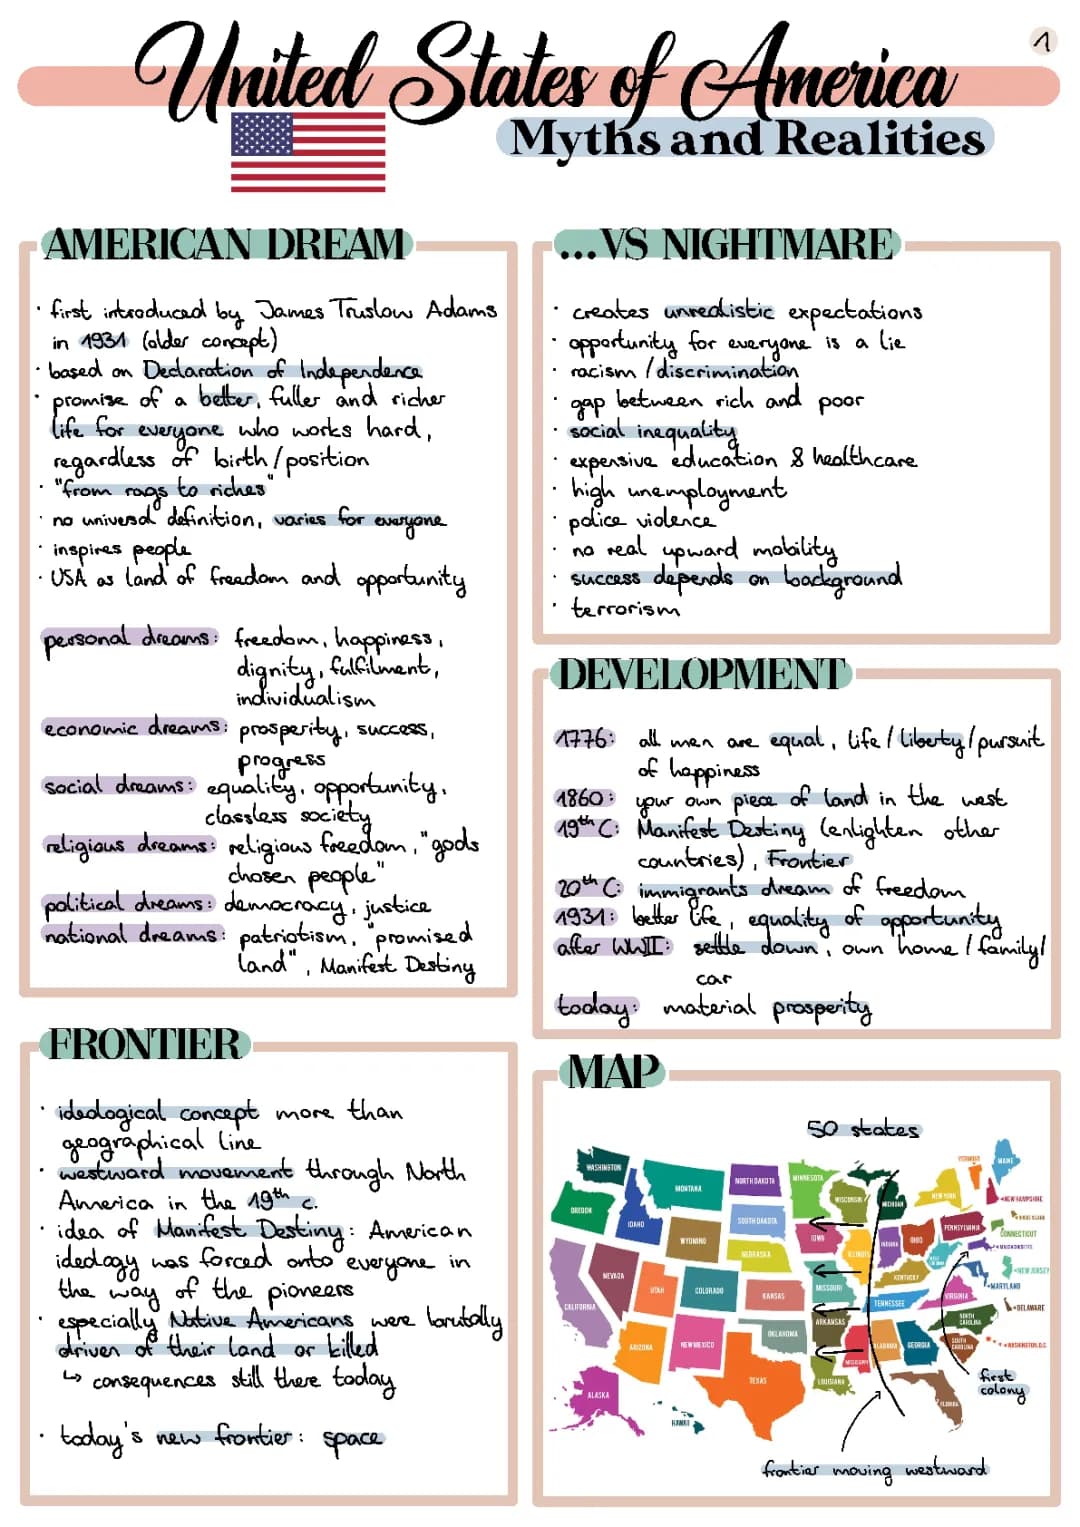 United States of America
1
Myths and Realities
AMERICAN DREAM
· first introduced by James Truslow Adams
in 1931 (older concept)
· based on Declaration of Independence
· promise of a better, fuller and richer
life for everyone who works hard,
regardless of birth/position
· "from rags to riches"
· no universal definition, varies for everyone
· inspires people
· USA as land of freedom and opportunity
personal dreams: freedom, happiness,
dignity, fulfilment,
individualism
economic dreams: prosperity, success,
progress
social dreams: equality, opportunity,
classless society
religious dreams: religious freedom, "gods
chosen people"
political dreams: democracy, justice
national dreams: patriotism, "promised
land", Manifest Destiny
...VS NIGHTMARE
· creates unrealistic expectations
· opportunity for everyone is a lie
· racism / discrimination
· gap between rich and poor
· social inequality
· expensive education & healthcare
· high unemployment
· police violence
· no real upward mobility
· success depends on background
· terrorism
DEVELOPMENT
1776: all men are equal, life / liberty / pursuit
of happiness
1860: your own piece of land in the west
19th C: Manifest Destiny (enlighten other
countries), Frontier
20th C: immigrants dream of freedom
1931: better life, equality of opportunity
after WWII: settle down, own home / family/
car
today: material prosperity
FRONTIER
· ideological concept more than
geographical line
· westward movement through North
America in the 19th c.
· idea of Manifest Destiny: American
ideology was forced onto everyone in
the way of the pioneers
· especially Native Americans were brutally
driven of their land or killed
↳ consequences still there today
· today's new frontier: space
MAP
50 states
WASHINGTON
OREGON
IDAHO
MONTANA
NORTH DAKOTA
MINNESOTA
WISCONSIN
MICHIGAN
NEW YORK
VERMONT
MAINE
NEW HAMPSHIRE
RHODE ISLAND
CONNECTICUT
MASSACHUSETTS
NEW JERSEY
MARYLAND
DELAWARE
WASHINGTON, D.C.
SOUTH DAKOTA
WYOMING
NEBRASKA
IOWA
ILLINOIS
INDIANA
OHIO
PENNSYLVANIA
WEST VIRGINIA
VIRGINIA
NEVADA
UTAH
COLORADO
KANSAS
MISSOURI
KENTUCKY
TENNESSEE
NORTH CAROLINA
SOUTH CAROLINA
CALIFORNIA
ARIZONA
NEW MEXICO
OKLAHOMA
ARKANSAS
MISSISSIPPI
ALABAMA
GEORGIA
TEXAS
LOUISIANA
FLORIDA
ALASKA
HAWAII
first
colony
frontier moving westward